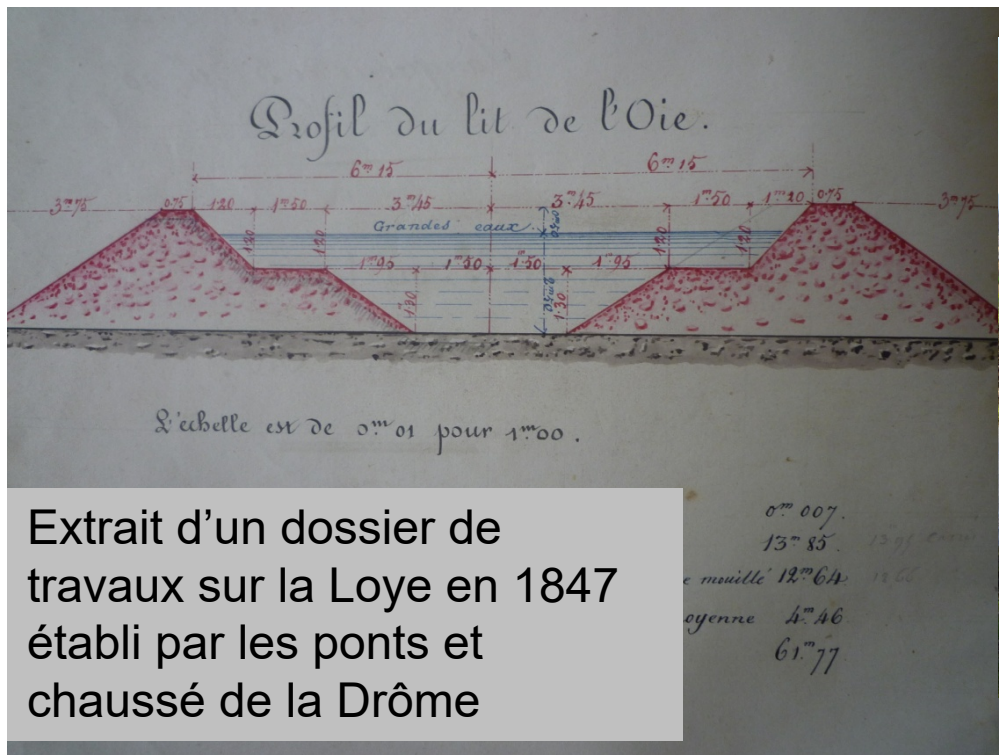 Profil du lit de l'Oie.
6m 15 6m 15
3m 75 0.75 1.20 1m 50 3m 45 3m 45 1m 50 1m 20 0.75 3m 75
Grandes eaux
1.20 1.20 1.20 1.20
1m 95 1m 50 1m 50 1m 95
1.30 1.30
L'échelle est de 0m 01 pour 1m 00.
0m 007.
13m 85.
e mouillé 12m 64
oyenne 4m 46
61m 77
Extrait d’un dossier de
travaux sur la Loye en 1847
établi par les ponts et
chaussé de la Drôme